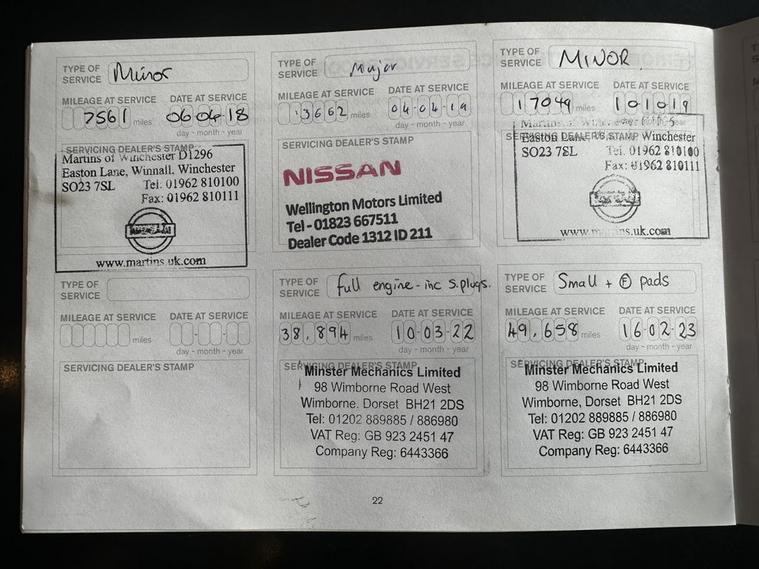 TYPE OF SERVICE Minor
MILEAGE AT SERVICE DATE AT SERVICE
7561 miles 06 04 18
day - month - year
SERVICING DEALER'S STAMP
Martins of Winchester D1296
Easton Lane, Winnall, Winchester
SO23 7SL Tel: 01962 810100
Fax: 01962 810111
www.martins.uk.com
TYPE OF SERVICE Major
MILEAGE AT SERVICE DATE AT SERVICE
13662 miles 04-04-19
day - month - year
SERVICING DEALER'S STAMP
NISSAN
Wellington Motors Limited
Tel - 01823 667511
Dealer Code 1312 ID 211
TYPE OF SERVICE MINOR
MILEAGE AT SERVICE DATE AT SERVICE
17049 miles 10 10 19
day - month - year
SERVICING DEALER'S STAMP
Easton Lane, Winchester
SO23 7SL Tel: 01962 810100
Fax: 01962 810111
www.martins.uk.com
TYPE OF SERVICE
MILEAGE AT SERVICE DATE AT SERVICE
miles
day - month - year
SERVICING DEALER'S STAMP
TYPE OF SERVICE full engine - inc s.plugs.
MILEAGE AT SERVICE DATE AT SERVICE
38,894 miles 10-03-22
day - month - year
SERVICING DEALER'S STAMP
Minster Mechanics Limited
98 Wimborne Road West
Wimborne. Dorset BH21 2DS
Tel: 01202 889885 / 886980
VAT Reg: GB 923 2451 47
Company Reg: 6443366
TYPE OF SERVICE Small + Ⓕ pads
MILEAGE AT SERVICE DATE AT SERVICE
49,658 miles 16-02-23
day - month - year
SERVICING DEALER'S STAMP
Minster Mechanics Limited
98 Wimborne Road West
Wimborne, Dorset BH21 2DS
Tel: 01202 889885 / 886980
VAT Reg: GB 923 2451 47
Company Reg: 6443366
22